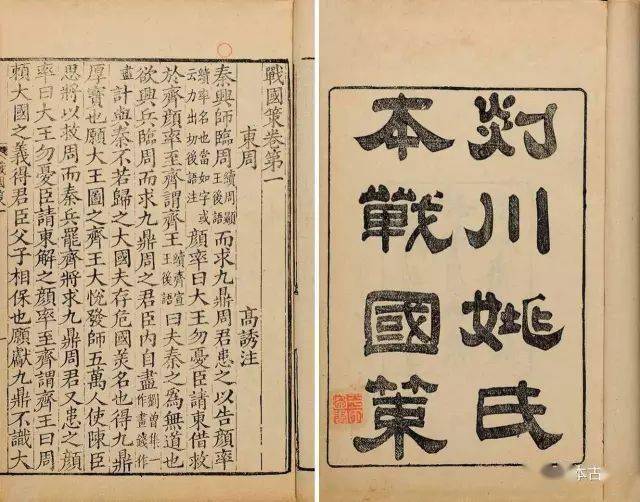 剡川姚氏
本戰國策
戰國策卷第一
東周 高誘注
秦興師臨周續周顯王後語而求九鼎周君患之以告顏率
續率名也當如字或云力出切後語注顏率曰大王勿憂臣請東借救
於齊顏率至齊謂齊王續齊宣王後語曰夫秦之為無道也
欲興兵臨周而求九鼎周之君臣內自盡劉曾一作畫錢作
計與秦不若歸之大國夫存危國美名也得九鼎
厚寶也願大王圖之齊王大悅發師五萬人使陳臣
思將以救周而秦兵罷齊將求九鼎周君又患之顏
率曰大王勿憂臣請東解之顏率至齊謂齊王曰周
賴大國之義得君臣父子相保也願獻九鼎不識大
本古